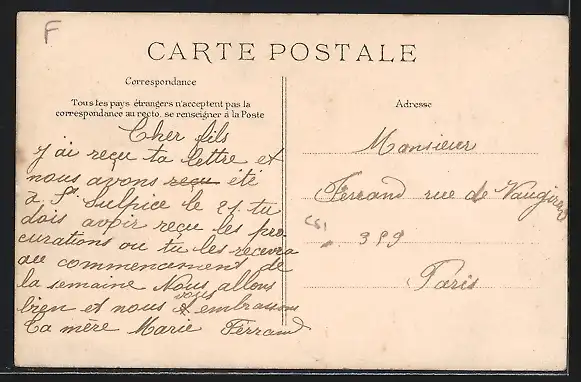 F
CARTE POSTALE
Correspondance
Tous les pays étrangers n'acceptent pas la
correspondance au recto. se renseigner à la Poste
Cher fils
J'ai reçu ta lettre et
nous avons reçu été
à St Sulpice le 21. tu
dois avoir reçu les pro
curations ou tu les recevra
au commencement de
la semaine Nous allons
bien et nous vous embrassons
Ta mère Marie Ferrand
Adresse
Monsieur
Ferrand rue de Vaugirard
389
Paris